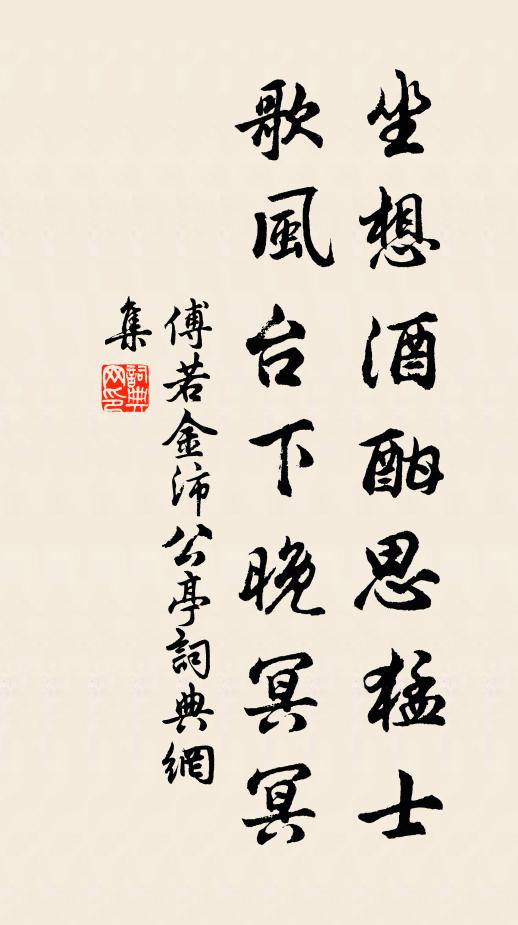 坐想酒酣思猛士
歌風台下晚冥冥
傅若金沛公亭詞典網
集
詞典网印